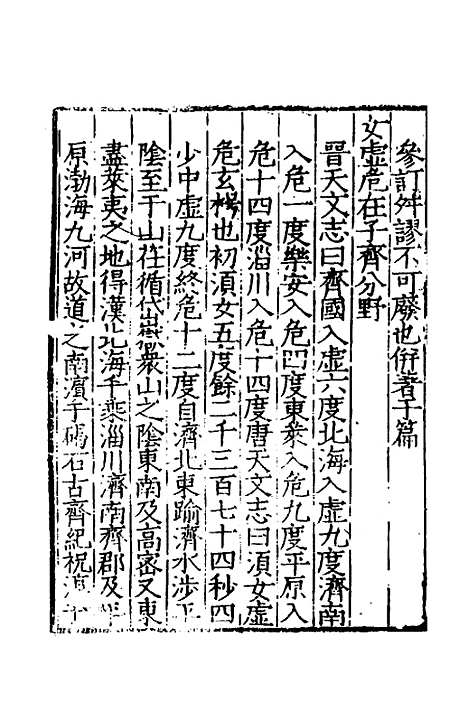 參訂舛謬不可廢也併著于篇
女虛危在子齊分野
晉天文志曰齊國入虛六度北海入虛九度濟南
入危一度樂安入危四度東萊入危九度平原入
危十四度淄川入危十四度唐天文志曰須女虛
危玄枵也初須女五度餘二千三百七十四秒四
少中虛九度終危十二度自濟北東踰濟水涉平
陰至于山茌循岱嶽衆山之陰東南及高密又東
盡萊夷之地得漢北海千乘淄川濟南齊郡及平
原渤海九河故道之南濱于碣石古齊紀祝淳于